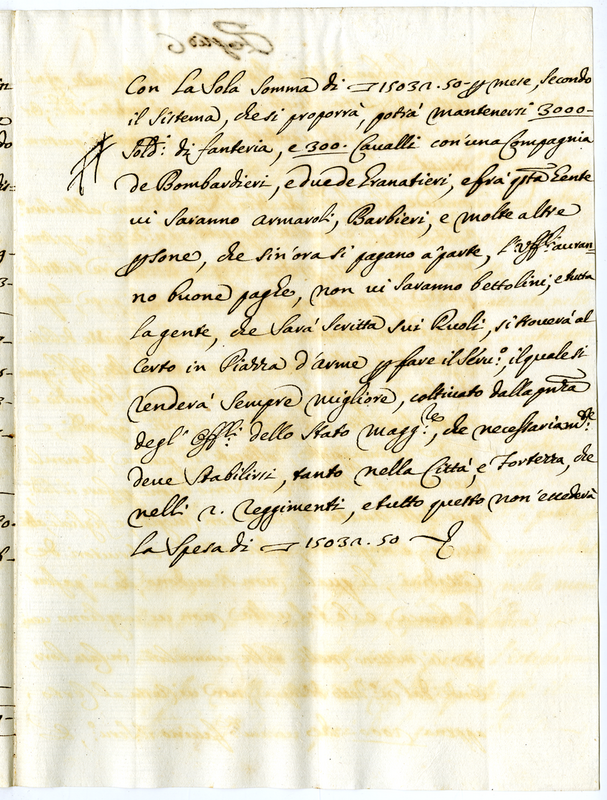 Con La Sola Somma di 15032.50 p mese, secondo
il sistema, che si proporrà, potrà mantenersi 3000
Sold.i di fanteria, e 300. Cavalli con una Compagnia
de Bombardieri, e due de Granatieri, e frà q.sta Gente
vi saranno armaroli, Barbieri, e molte altre
p sone, che sin'ora si pagano à parte, l'Uff.li auran=
no buone paghe, non vi saranno bettolini, e tutta
la gente, che sarà scritta sui Ruoli, si trouerà al
certo in Piazza d'arme p fare il seru.o, il quale si
renderà sempre migliore, coltiuato dalla pnza
degl' Off.li dello Stato magg.re, che necessariam.te
deve stabilirsi, tanto nella Città, e Fortezza, che
nelli 2. Reggimenti, e tutto questo non eccederà
la spesa di 15032.50